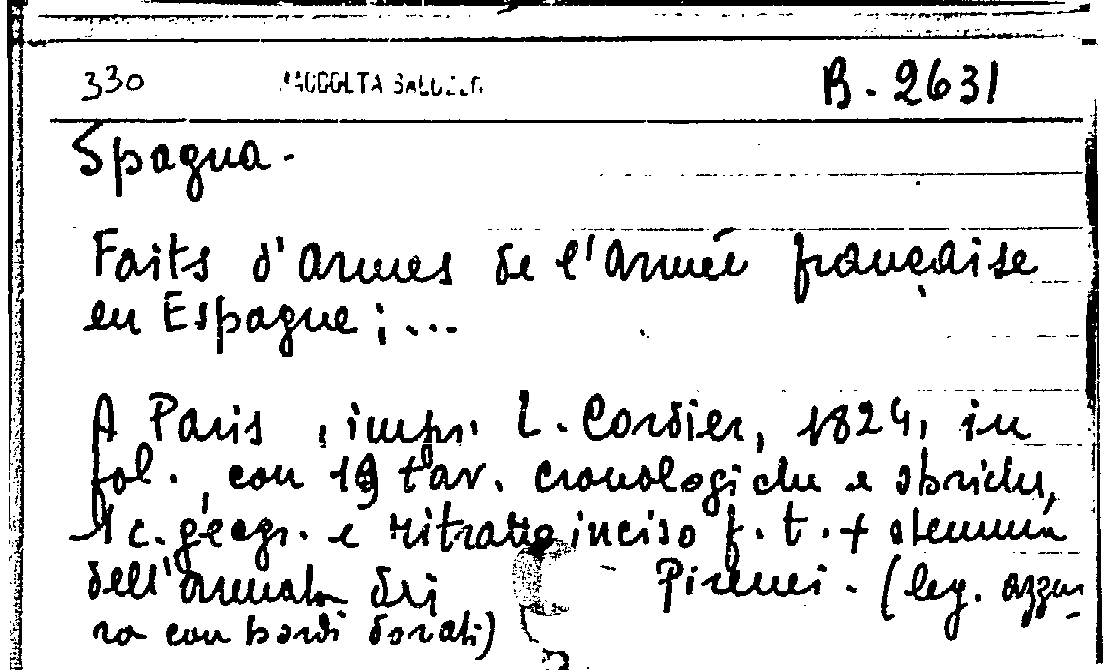 330 RACCOLTA B. 2631
Spagna.
Faits d'armes de l'armée française
en Espagne ; ...
A Paris , impr. L. Cordier, 1824, in
fol., con 19 tav. cronologiche e storiche,
1 c. geogr. e ritratto inciso f. t. + stemma
dell'armata dei Pirenei. (leg. azzur-
ro con bordi dorati)